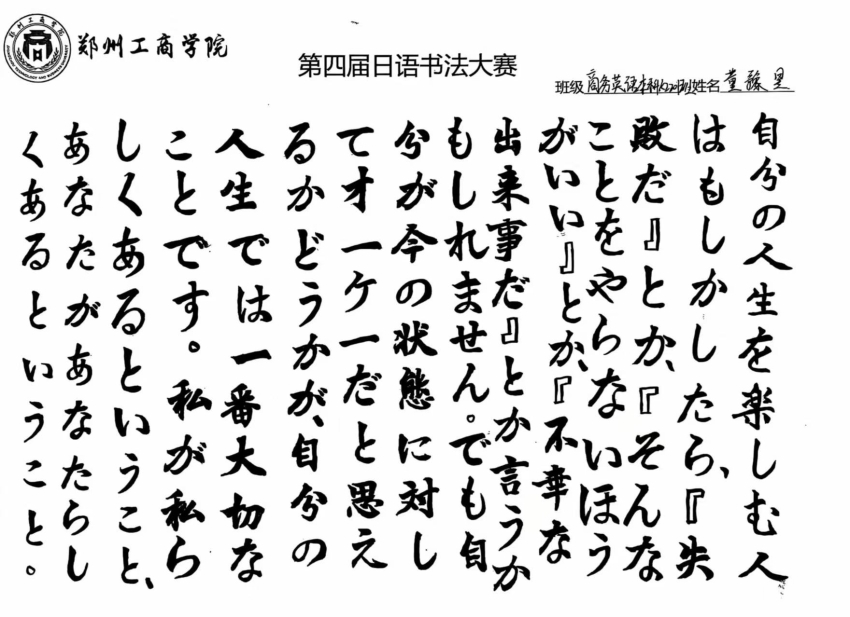 郑州工商学院
第四届日语书法大赛
班级 商务英语本科 班姓名 董 星
自分の人生を楽しむ人
はもしかしたら、『失
敗だ』とか、『そんな
ことをやらないほう
がいい』とか、『不幸な
出来事だ』とか言うか
もしれません。でも自
分が今の状態に対し
てオーケーだと思え
るかどうかが、自分の
人生では一番大切な
ことです。私が私ら
しくあるということ、
あなたがあなたらし
くあるということ。